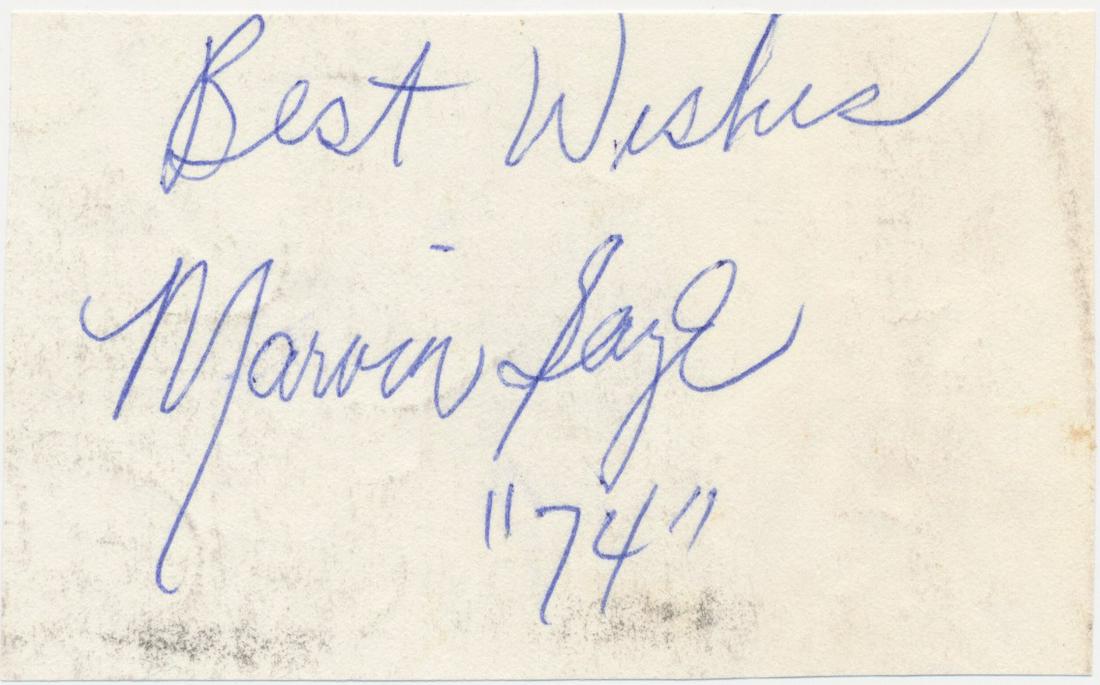 Best Wishes
Marvin Gaye
"74"